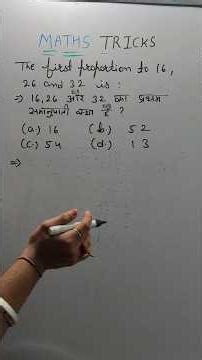 MATHS TRICKS
The first proportion to 16,
26 and 32 is :
⇒ 16, 26 और 32 का प्रथम
समानुपाती क्या है ?
(a.) 16 (b.) 52
(c.) 54 (d.) 13
⇒